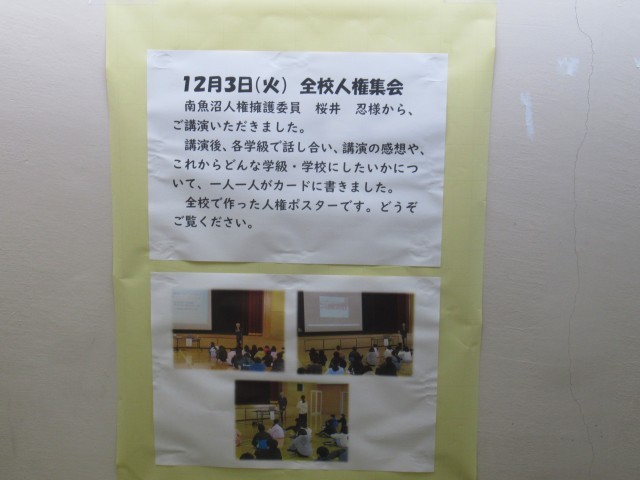 12月3日(火) 全校人権集会
南魚沼人権擁護委員 桜井 忍様から、
ご講演いただきました。
講演後、各学級で話し合い、講演の感想や、
これからどんな学級・学校にしたいかにつ
いて、一人一人がカードに書きました。
全校で作った人権ポスターです。どうぞ
ご覧ください。